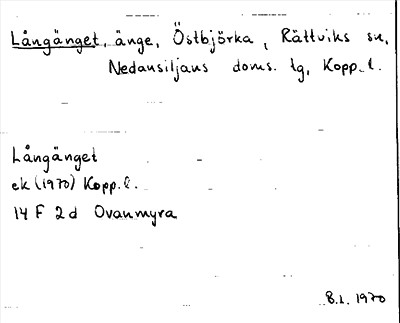 Långänget, änge, Östbjörka, Rättviks sn,
Nedansiljans doms. tg, Kopp. l.
Långänget
ek (1970) Kopp. l.
14 F 2d Ovanmyra
8.1. 1970